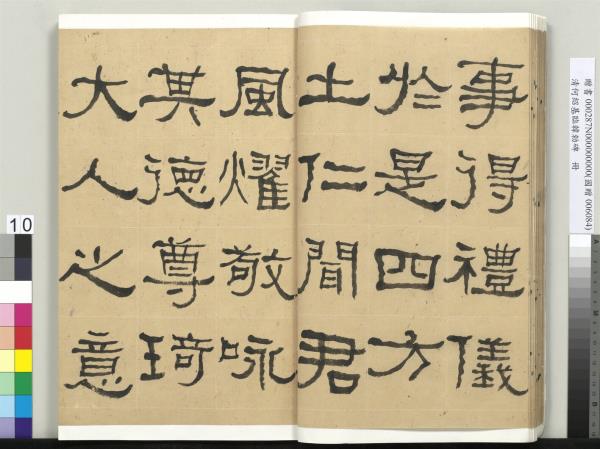 事得禮儀
於是四方
土仁聞君
風燿敬咏
其德尊琦
大人之意
贈書 000287N000000000(國贈 006084)
清何紹基臨韓勅碑 冊
10